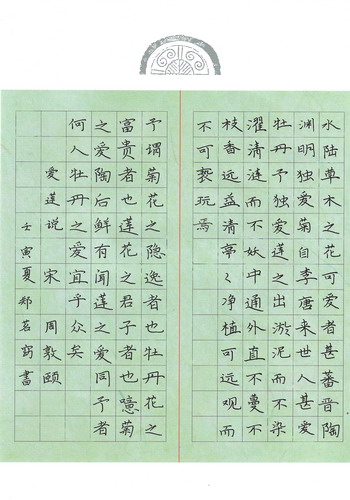 水陆草木之花可爱者甚蕃晋陶
渊明独爱菊自李唐来世人甚爱
牡丹予独爱莲之出淤泥而不染
濯清涟而不妖中通外直不蔓不
枝香远益清亭〻净植可远观而
不可亵玩焉
予谓菊花之隐逸者也牡丹花之
富贵者也莲花之君子者也噫菊
之爱陶后鲜有闻莲之爱同予者
何人牡丹之爱宜乎众矣
爱莲说 宋 周敦颐
壬寅夏郑书